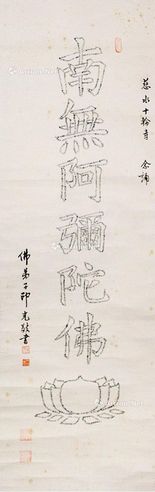 慈水十輪寺　念誦
南無阿彌陀佛
佛弟子印光敬書